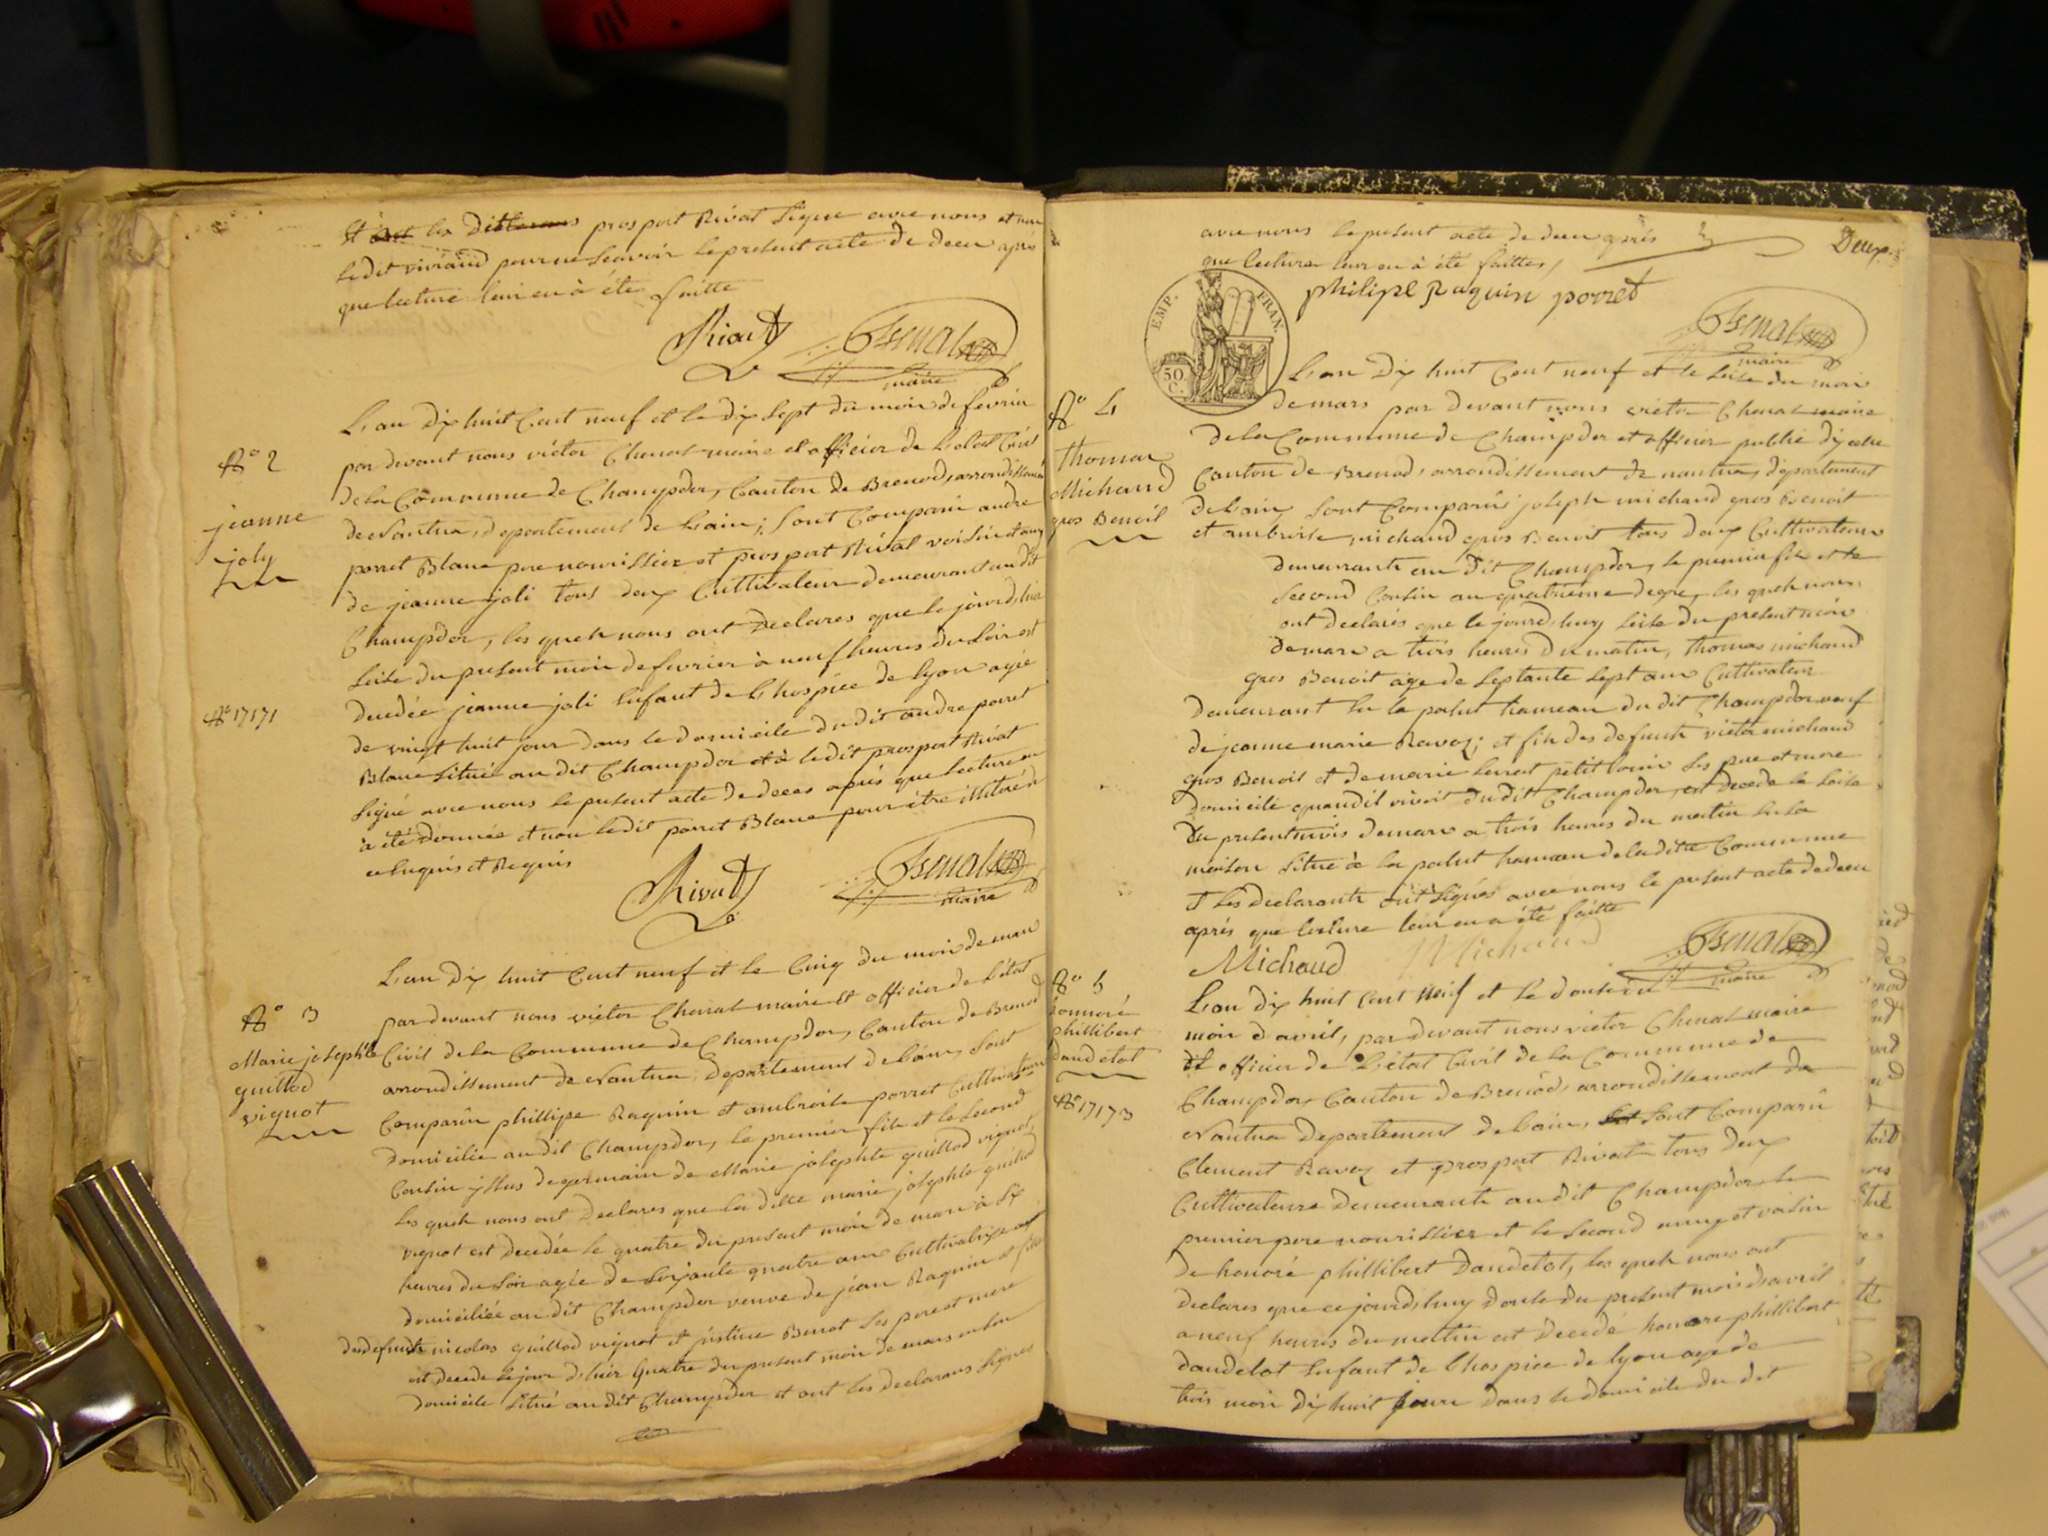 Et les prosport Rivat Signe avec nous et non
ledit viviand pour ne Scavoir le present acte de deces après
que lecture leur en à été faitte
Rivat
maire
N° 2
jeanne
joly
N° 17171
L'an dix huit Cent neuf et le dix Sept du mois de fevrier
par devant nous victor Chenat maire et officier de L'etat Civil
de la Commune de Champdor, Canton de Brenod, arrondissement
de Nantua, departement de L'ain; Sont Comparu andre
porret Blanc pere nourissier et prosport Rivat voisin et amy
de jeanne joli tous deux Cultivateur demeurant au dit
Champdor, les quels nous ont Declares que le jourd,hui
Seize du present mois de fevrier à neuf heures du Soir est
decedée jeanne joli Enfant de L'hospice de lyon agée
de vingt huit jour dans le domicile du dit andre porret
Blanc Situé au dit Champdor et à ledit prosport Rivat
Signé avec nous le present acte de deces après que lecture en
à été donnée et non ledit porret Blanc pour être illitéré
enquis et Requis
Rivat
maire
N° 3
Marie josephte
guillod
vignot
L'an dix huit Cent neuf et le Cinq du mois de mars
par devant nous victor Chenat maire et officier de L'état
Civil de la Commune de Champdor, Canton de Brenod
arrondissement de Nantua, departement de L'ain, Sont
Comparûs phillipe Raquin et ambroise porret Cultivateurs
domicilie au dit Champdor, le premier fils et le Second
Cousin issus de germain de Marie josephte guillod vignot,
les quels nous ont Declares que la ditte marie josephte guillod
vignot est decedée le quatre du present mois de mars à Six
heures du Soir agée de Soixante quatre ans Cultivatrice
domiciliée au dit Champdor veuve de jean Raquin et fille
des defunts nicolas guillod vignot et justine Benot Ses pere et mere
est decede le jour d,hier quatre du present mois de mars en Son
domicile Situé au dit Champdor et ont les declarans Signes
Deux
avec nous le present acte de deces après
que lecture leur en à été faittes,
philipe Raquin porret
maire
EMP. FRAN.
50 C.
N° 4
thomas
Michaud
gros Benoit
L'an Dix huit Cent neuf et le Seise du mois
de mars par devant nous victor Chenat maire
de la Commune de Champdor et officier public d'icelle
Canton de Brenod, arrondissement de nantua, departement
de L'ain, Sont Comparûs joseph michaud gros Benoit
et ambroise michaud gros Benoit tous deux Cultivateurs
demeurants au dit Champdor, le premier fils et le
Second Cousin au quatrieme degre, les quels nous
ont declarés que le jourd,huy Seise du present mois
de mars a trois heures du matin, thomas michaud
gros Benoit agé de Septante Sept ans Cultivateur
demeurant Sur la palut hameau du dit Champdor veuf
de jeanne marie Ravoz; et fils des defunts victor michaud
gros Benoit et de marie petit Ses pere et mere
domicile quand il vivoit du dit Champdor, est decede le Seise
du present mois de mars a trois heures du matin En Sa
maison Situé à la palut hameau de la ditte Commune
Les declarants ont Signés avec nous le present acte de deces
après que lecture leur en a été faitte
Michaud Michaud
maire
N° 5
honnoré
phillibert
dandelot
N° 17173
L'an dix huit Cent neuf et le douse du
mois d'avril, par devant nous victor Chenat maire
et officier de L'état Civil de la Commune de
Champdor, Canton de Brenod, arrondissement de
Nantua departement de L'ain, Sont Comparû
Clement Ravoz et prosport Rivat tous deux
Cultivateurs demeurants au dit Champdor, le
premier pere nourissier et le Second amy et voisin
de honoré phillibert Dandelot, les quels nous ont
declares que ce jourd,huy douse du present mois d'avril
a neuf heures du mattin est decedé honoré phillibert
dandelot Enfant de L'hospice de lyon age de
trois mois dix huit jours dans le domicile du dit